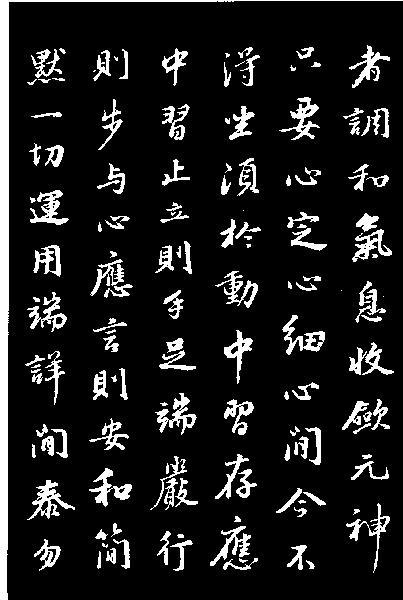 者調和氣息收斂元神
只要心定心細心閒今不
得坐須於動中習存應
中習止立則手足端嚴行
則步与心應言則安和簡
默一切運用端詳閒泰勿